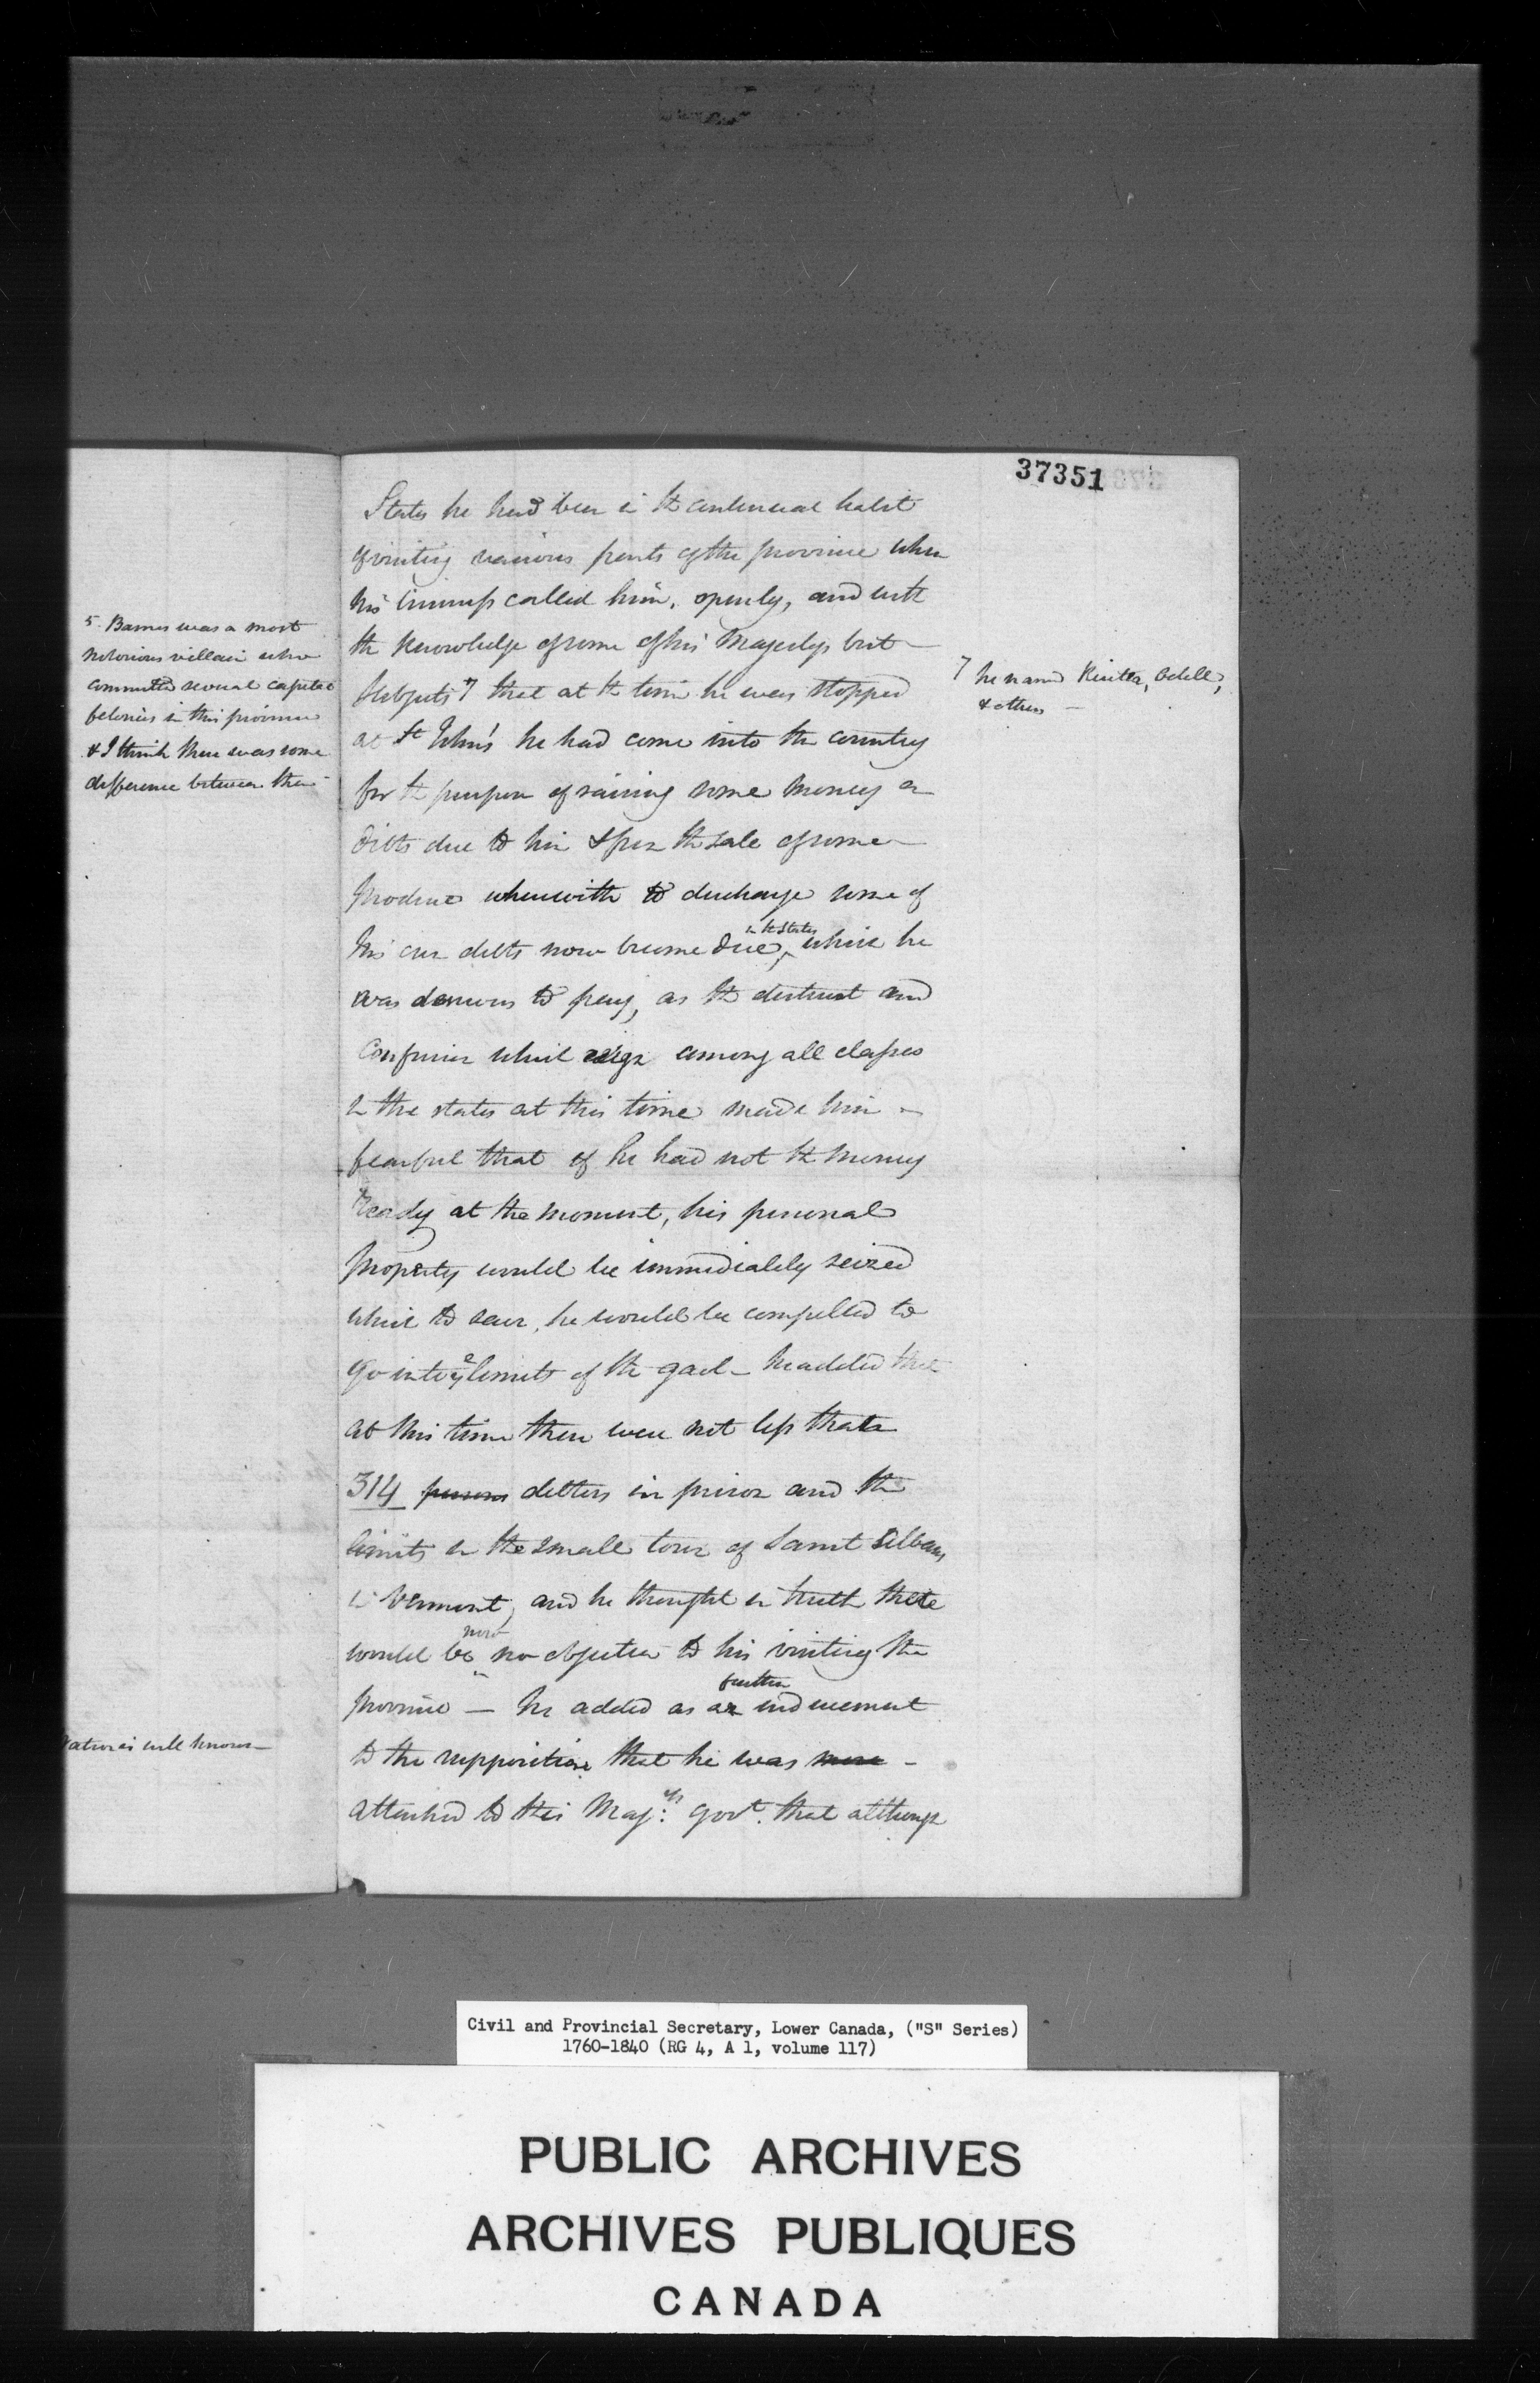 37351
States he had been in the continual habit
of visiting various parts of the province when
his business called him, openly, and with
the knowledge of some of his Majestys best
subjects 7 that at the time he was stopped
at St John's he had come into the country
for the purpose of raising some money on
debts due to him & from the sale of some
produce wherewith to discharge some of
his own debts now become due, in the States which he
was desirous to pay, as the distrust and
confusion which reign among all classes
in the states at this time made him
fearful that if he had not the money
ready at the moment, his personal
property would be immediately seized
which to save, he would be compelled to
go into ye limits of the gaol - he added that
at this time there were not less than
314 persons debtors in prison and the
limits in the small town of Saint Albans
in Vermont, and he thought in truth there
would be now no objection to his visiting the
province — he added as a further inducement
to the supposition that he was more -
attached to His Maj:ys Govt. that although
5. Barnes was a most
notorious villain who
committed several capital
felonies in this province
& I think there was some
difference between them
7 he named Odell,
& others —
is well known —
Civil and Provincial Secretary, Lower Canada, ("S" Series)
1760-1840 (RG 4, A 1, volume 117)
PUBLIC ARCHIVES
ARCHIVES PUBLIQUES
CANADA